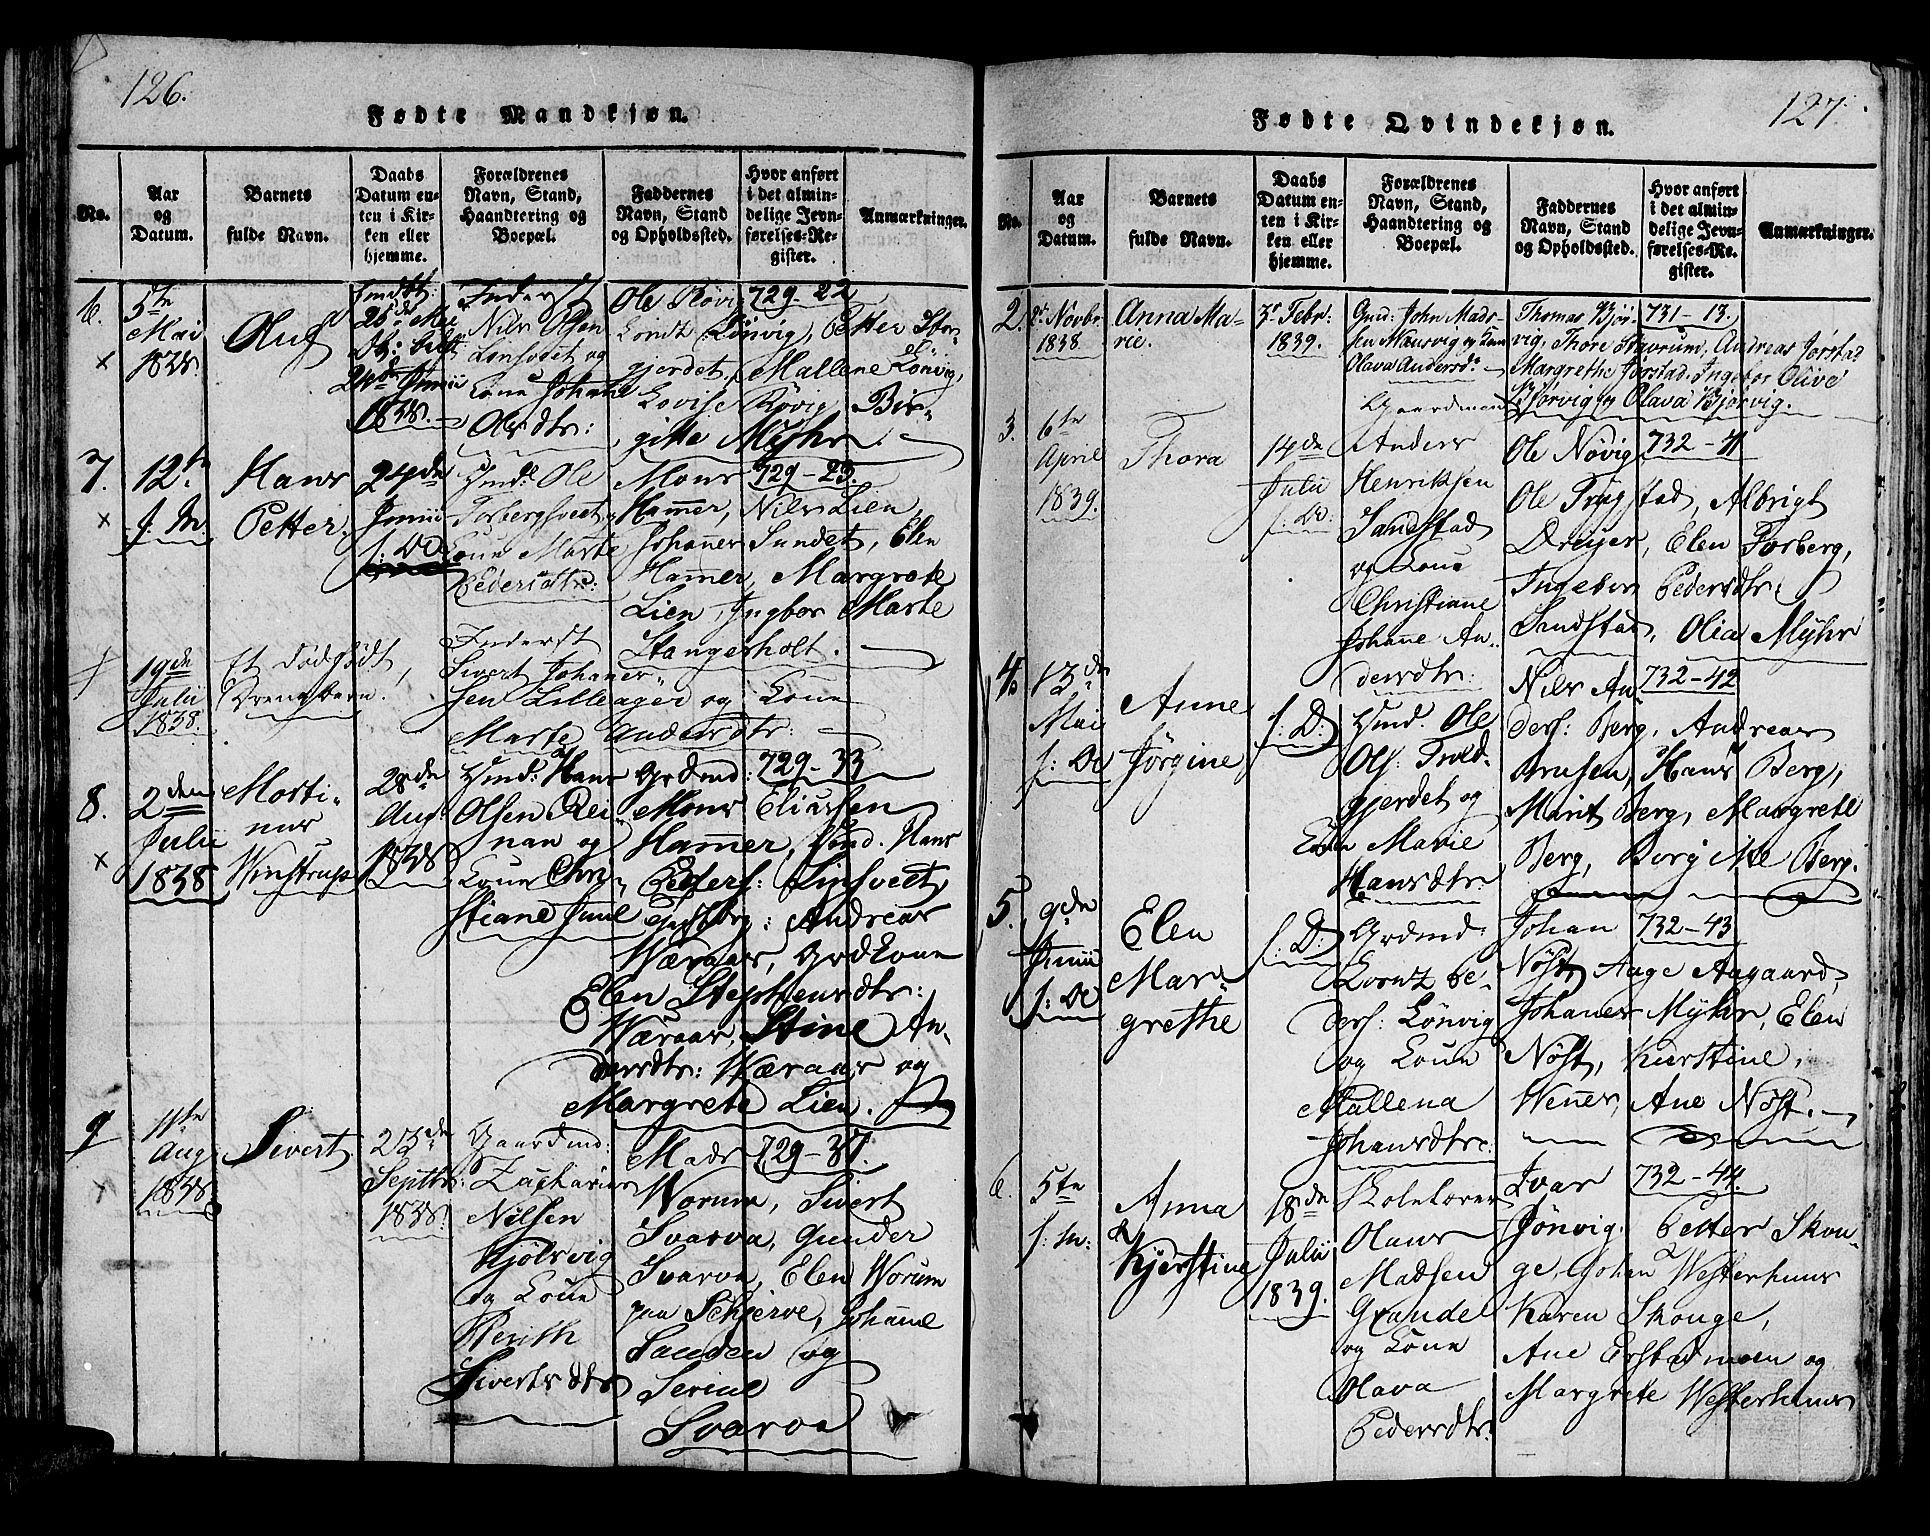 126.
Fødte Mandkjøn.
No.
Aar
og
Datum.
Barnets
fulde Navn.
Daabs
Datum en-
ten i Kir-
ken eller
hjemme.
Forældrenes
Navn, Stand,
Haandtering og
Boepæl.
Faddernes
Navn, Stand
og Opholdssted.
Hvor anført
i det almin-
delige Jevn-
førelses-Re-
gister.
Anmærkninger.
6.
5te
Mai
1838.
Oluf
25de Mai
24de Junii
1838.
Inderst
Nils Olsen
Linsveet og
Kone Johane
Olsdtr:
Ole Røvig 729-22
Lornts Lönvig, Petter Stor-
gjerdet. Mallene Lönvig,
Lovise Røvig Bir-
gitte Myhr.
7.
12te
f. M.
Hans
Petter.
24de
Junii
f: D
Hmd. Ole
Torbergsveet
Kone Marte
Pedersdtr:
Mons 729-23.
Hammer, Nils Lien,
Johannes Sundet, Elen
Hammer, Margrete
Lien, Ingbor Marte
Stangerholt.
19de
Julii
1838.
Et dödfödt
Drengebarn.
Inderst
Sivert Johanes-
sen Lilleager og Kone
Marte Andersdtr:
8.
2den
Julii
1838
Morti-
nus
Winstrup
28de
Aug
1838
Hmd: Hans
Olsen Rei-
nan og
Kone Chri-
stiane Juul
Grdmd: 729-33
Mons Eliassen
Hammer, Hmd. Hans
Peders: Linsveet,
Andreas
Wæraas, Grdkone
Elen Stephensdtr:
Wæraas, Stine An-
dersdtr: Wæraas og
Margrete Lien.
9
11te
Aug
1838.
Sivert.
23de
Septbr:
1838.
Gaardmd:
Zacharias
Nilsen
Kjölsvig
og Kone
Berith
Sivertsdtr
Mads 729-37.
Worum, Sivert
Svarva, Gunder
Svarva, Elen Worum
paa Schjerve, Johanne
Sanden og
Serine
Svarva
127.
Fødte Qvindekjøn.
No.
Aar
og
Datum.
Barnets
fulde Navn.
Daabs
Datum en-
ten i Kir-
ken eller
hjemme.
Forældrenes
Navn, Stand,
Haandtering og
Boepæl.
Faddernes
Navn, Stand
og Opholdssted.
Hvor anført
i det almin-
delige Jevn-
førelses-Re-
gister.
Anmærkninger.
2.
2de Novbr
1838
Anna Ma-
rie.
3de Febr:
1839.
Gmd: John Mads-
sen Næsvig og Kone
Olava Andersdr
Thomas Bjør- 731-13.
vig, Thore Stavrum, Andreas Jørstad
Margrethe Jørstad. Ingebor Olive
Bjørvig og Olava Bjørvig.
3.
6te
April
1839.
Thora
14de
Julii
f: D:
Gaardmand
Anders
Henriksen
Sandstad
og Kone
Christiane
Johanne An-
dersdtr:
Ole Nøvig 732-41
Ole Trygstad, Albrigt
Dreyer, Elen Forberg,
Ingebor Pedersdtr:
Sandstad, Olia Myhr
4.
13de
Mai
f: D
Anne
Jørgine
f: D:
Hmd. Ole
Ols: Trold-
gjerdet og
Kone Marie
Hansdtr:
Nils An- 732-42
ders: Berg, Andreas
Brusen, Hans Berg,
Marit Berg, Margrete
Berg, Borg Mie Berg.
5.
9de
Junii
f: D
Elen
Mar-
grethe
f: D:
Grdmd:
Lorntz Pe-
ders: Lönvig
og Kone
Mallena
Johansdtr:
Johan 732-43
Nöst, Aage Aagaard,
Johanes Myhr, Elen
Nöst, Kierstine
Wenes, Ane Nöst.
6.
5te
f: M:
Anna
Kjerstine
18de
Julii
1839.
Skolelærer
Olaus
Madsen
Grande
og Kone
Olava
Pedersdtr.
Ivar 732-44.
Jönvig. Petter Skou-
ge, Johan Westerhuus
Karen Skouge,
Ane Erstadmoen og
Margrete Westerhuus